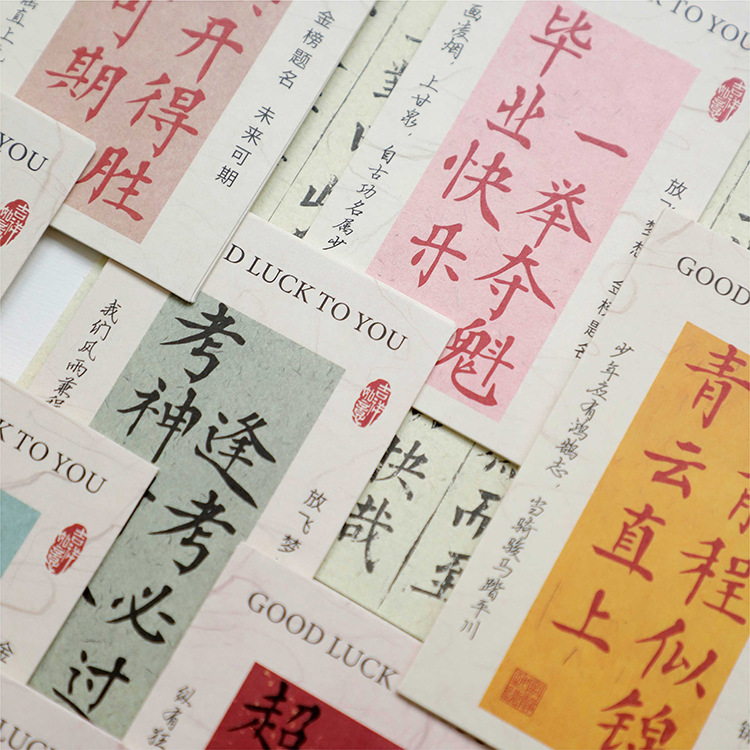 直上
可期
开得胜
金榜题名 未来可期
K TO YOU
画凌烟，上甘泉，自古功名属少
毕业快乐
一举夺魁
放飞
吉祥
TO YOU
D LUCK TO YOU
我们风雨兼程
考神
逢考必过
放飞梦
吉祥
GOOD
少年应有鸿鹄志，当骑骏马踏平川
青云直上
前程似锦
快哉
而
K TO YOU
吉祥
金
GOOD LUCK
纵有狂
超
LUCK